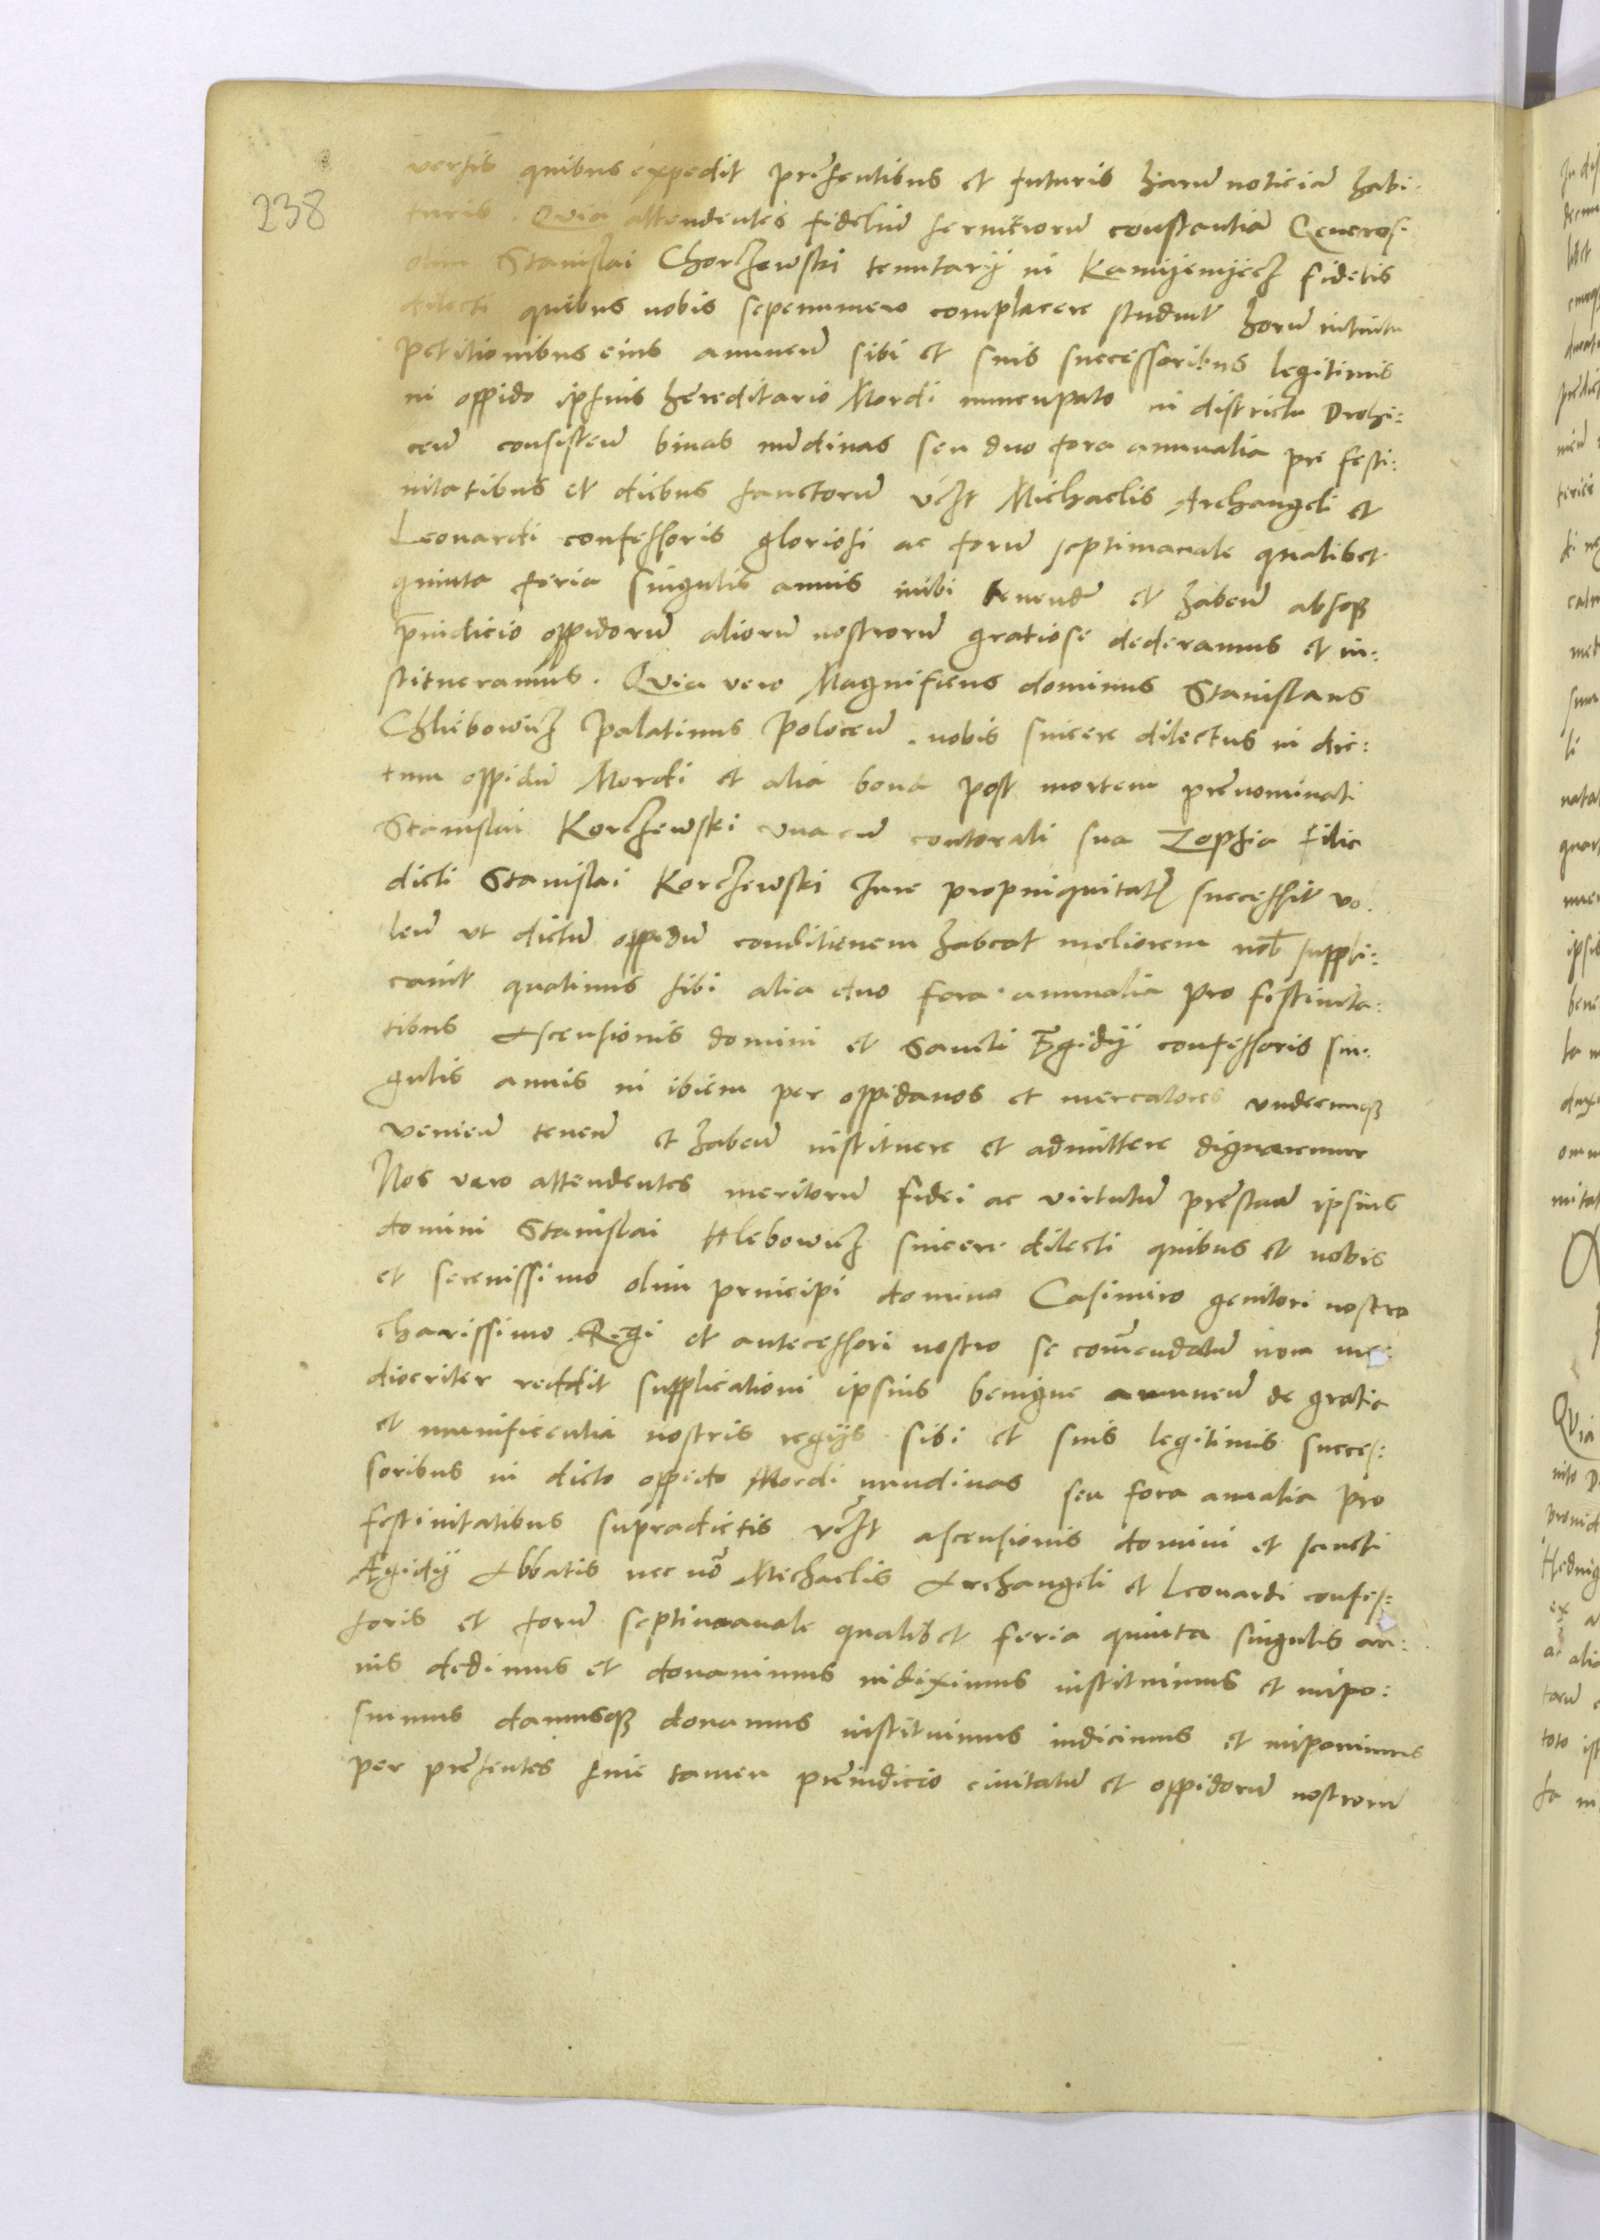 238
versis quibus expedit presentibus et futuris harum noticiam habi:
turis. Quia attendentes fidelium serviciorum constantiam Generosi
olim Stanislai Chorczewski tenutarij in Kamyenyecz fidelis
dilecti quibus nobis sepenumero complacere studuit horum intuitu
petitionibus eius annuen sibi et suis successoribus legitimis
in oppido ipsius hereditario Mordi nuncupato in districtu Drohi:
cen consisten binas nundinas seu duo fora annualia pre festi:
nitatibus et diebus sanctorum vczt Michaelis Archangeli et
Leonardi confessoris gloriosi ac forum septimanale qualibet
quinta feria singulis annis inibi tenend et haben absq
preiudicio oppidorum aliorum nostrorum gratiose dederamus et in:
stitueramus. Quia vero Magnificus dominus Stanislaus
Chliebowicz palatinus polocen. nobis sincere dilectus in dic:
tum oppidum Mordi et alia bona post mortem prenominati
Stanislai Korczewski una cum contorali sua Zophia filia
dicti Stanislai Korczewski Iure propinquitatis successit vo:
len ut dictum oppidum conditionem habeat meliorem nob suppli:
cavit quatinus sibi alia duo fora annualia pro festivita:
tibus Ascensionis domini et Sancti Egidij confessoris sin:
gulis annis in ibidem per oppidanos et mercatores undecunq
venien tenen et haben instituere et admittere dignaremur
Nos vero attendentes meritorum fidei ac virtutum prestan ipsius
domini Stanislai Hlebowicz sincere dilecti quibus et nobis
et serenissimo olim principi domino Casimiro genitori nostro
charissimo Regi et antecessori nostro se commendatum non me:
diocriter reddit supplicationi ipsius benigne annuen de gratia
et munificentia nostris regijs sibi et suis legitimis succes:
soribus in dicto oppido Mordi nundinas seu fora anualia pro
festivitatibus supradictis vczt ascensionis domini et sancti
Agidij Abbatis nec non Michaelis Archangeli et Leonardi confes:
soris et forum septimanale qualibet feria quinta singulis an:
nis dedimus et donavimus indiximus instituimus et inpo:
suimus damusq donamus instituimus indicimus et inponimus
per presentes sine tamen preiudicio civitatum et oppidorum nostrorum